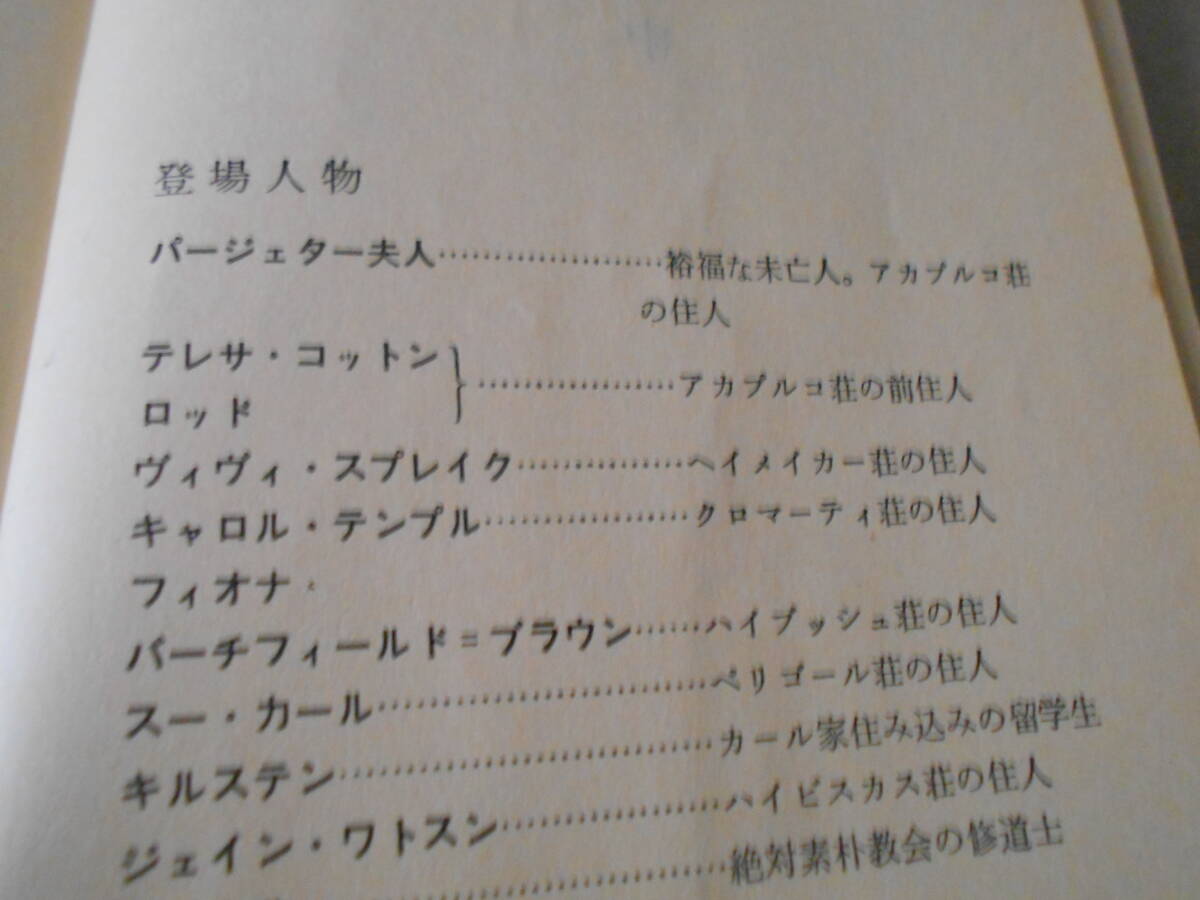 登場人物
パージェター夫人……………………裕福な未亡人。アカプルコ荘
の住人
テレサ・コットン
ロッド
}…………………アカプルコ荘の前住人
ヴィヴィ・スプレイク………………ヘイメイカー荘の住人
キャロル・テンプル…………………クロマーティ荘の住人
フィオナ・
バーチフィールド=ブラウン……ハイブッシュ荘の住人
スー・カール………………………………ペリゴール荘の住人
キルステン…………………………………カール家住み込みの留学生
ジェイン・ワトスン……………………ハイビスカス荘の住人
……………………絶対素朴教会の修道士